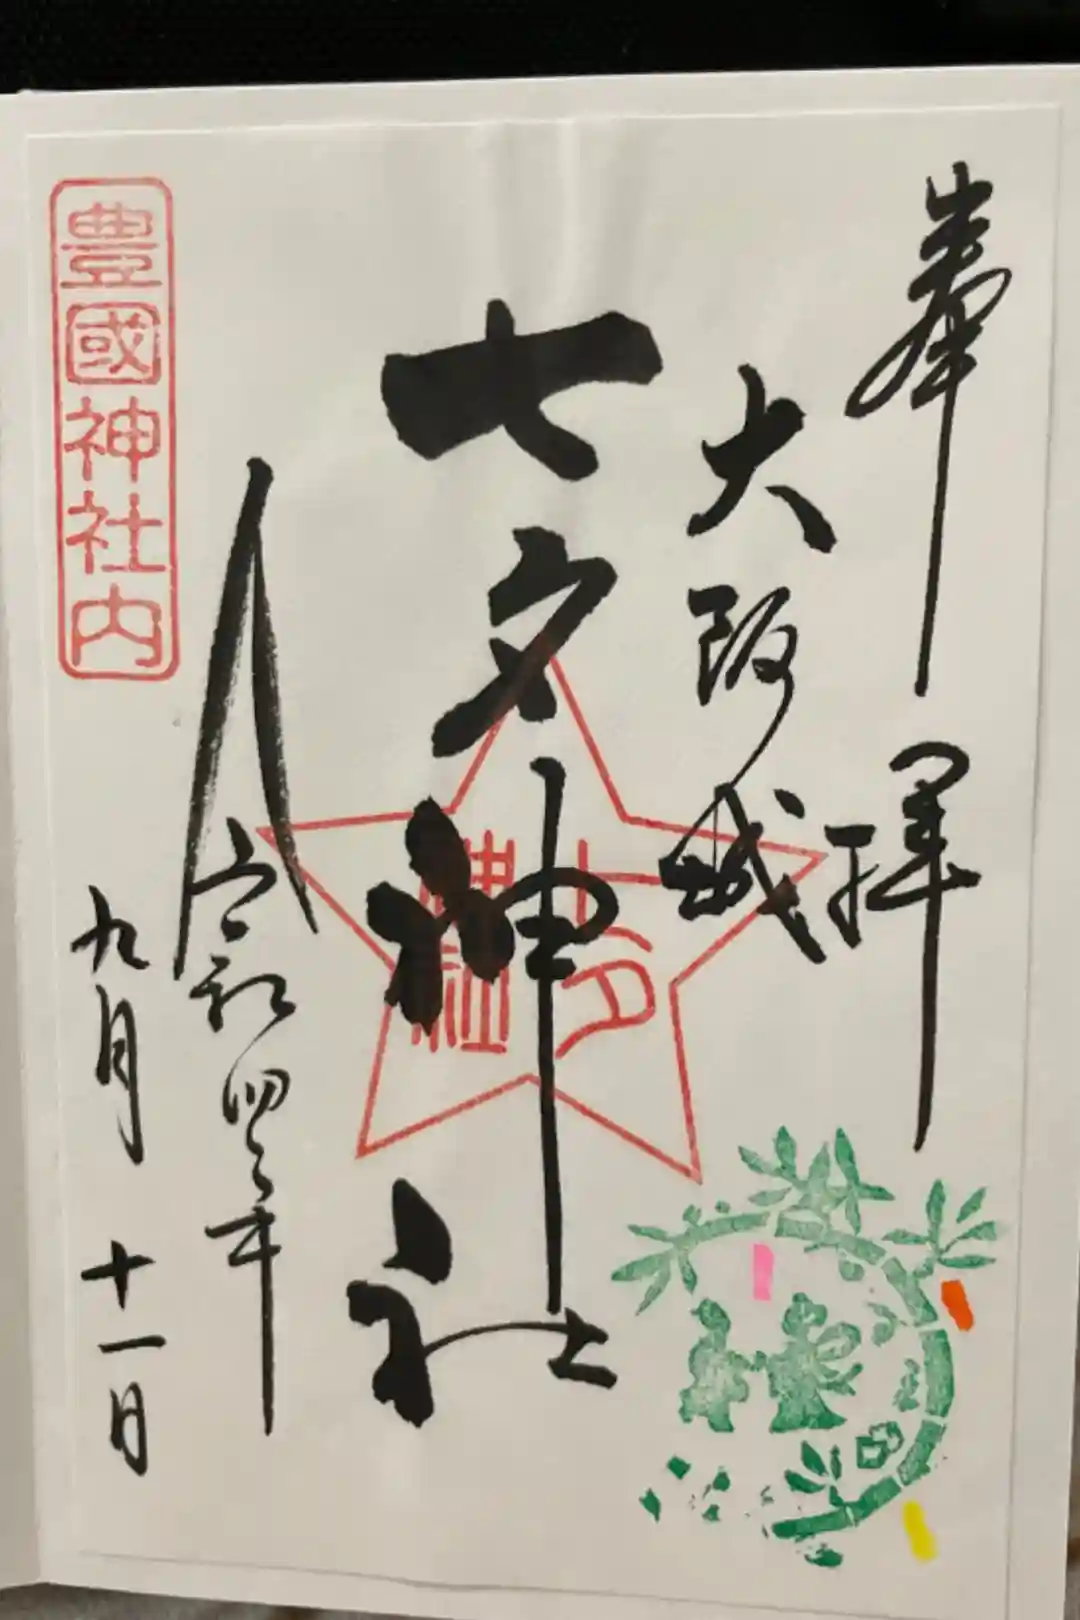 奉拝
大阪城
七夕神社
七夕
神社
令和四年
九月十一日
豊國神社内